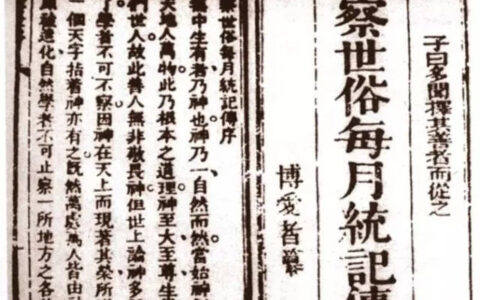 子曰多聞擇其善者而從之
察世俗每月統記傳
博愛者纂
察世俗每月統記傳序
無中生有者乃神也神乃一自然而然當始神
天地人萬物此乃根本之道理神至大至尊生
們世人故此善人無非敬畏神但世上論神多
了學者不可不察因神在天上而現著其榮所
一個天字指着神亦有之既然萬處萬人皆由
被造化自然學者不可止察一所地方之各